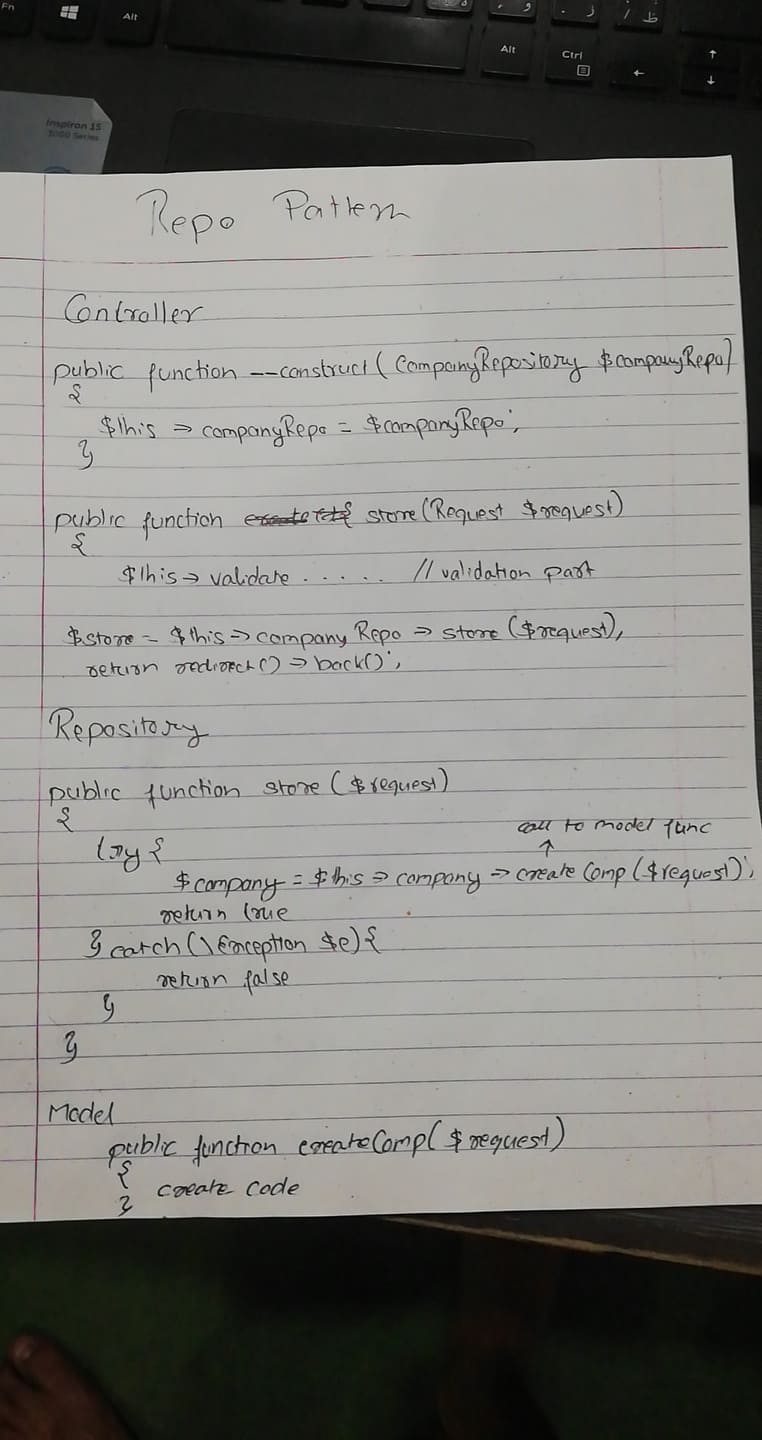 Fn
Alt
Alt
Ctrl
Inspiron 15
3000 Series
Repo Pattern
Controller
public function __construct(CompanyRepository $companyRepo)
{
$this → companyRepo = $companyRepo;
}
public function store(Request $request)
{
$this → validate . . . . . // validation part
$store = $this → companyRepo → store($request);
return redirect() → back();
Repository
public function store ($request)
{
call to model func
↑
try {
$company = $this → company → createComp($request);
return true
} catch(\Exception $e){
return false
}
}
Model
public function createComp($request)
{
create code
}